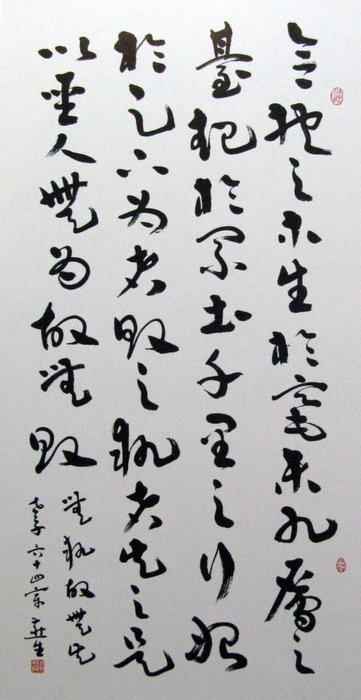 合抱之木生於毫末九層之
臺起於累土千里之行始
於足下為者敗之執者失之是
以聖人無為故無敗
無執故無失
老子六十四章 生